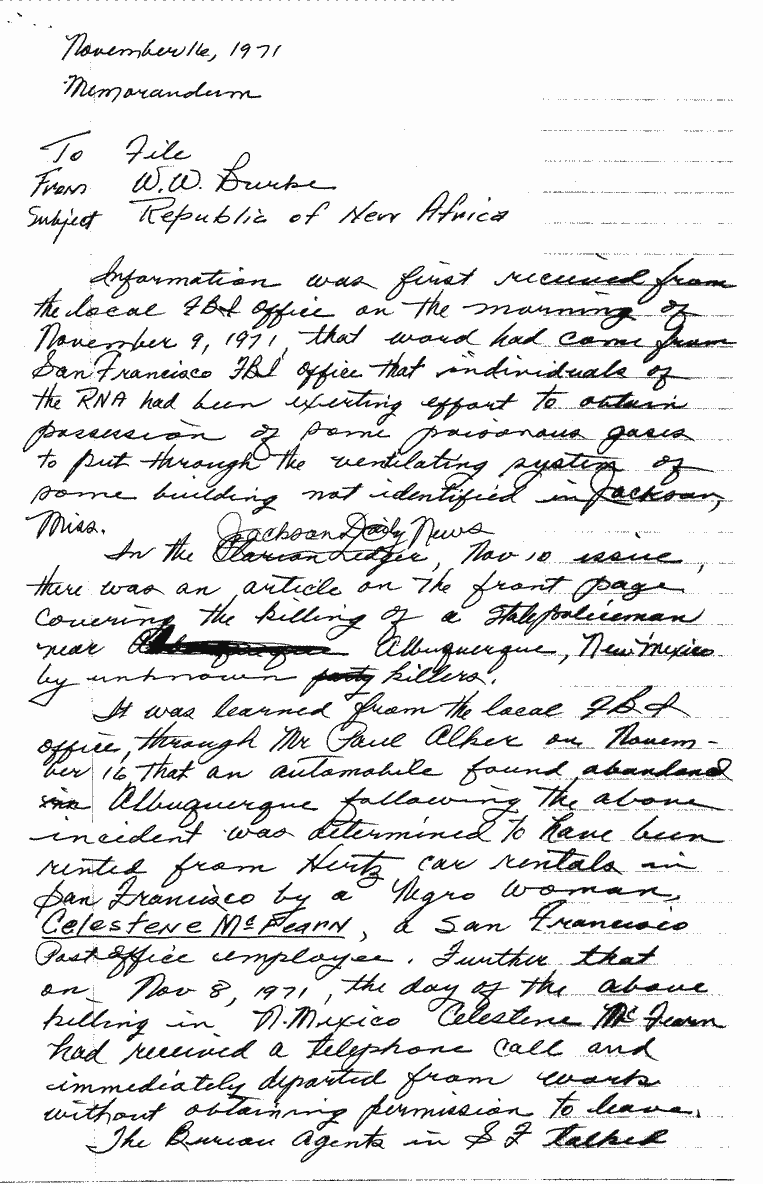 November 16, 1971
Memorandum
To File
From W.W. Burke
Subject Republic of New Africa
Information was first received from
the local FBI office on the morning of
November 9, 1971, that word had come from
San Francisco FBI office that individuals of
the RNA had been exerting effort to obtain
possession of some poisonous gases
to put through the ventilating system of
some building not identified in Jackson,
Miss.
Jackson Daily News
In the Clarion Ledger, Nov 10 issue,
there was an article on the front page
covering the killing of a State policeman
near Albuquerque, New Mexico
by unknown party killers.
It was learned from the local FBI
office, through Mr Paul Alker on Novem-
ber 16, that an automobile found abandoned
in Albuquerque following the above
incident was determined to have been
rented from Hertz car rentals in
San Francisco by a Negro woman,
Celestene McFearn, a San Francisco
Post office employee. Further that
on Nov 8, 1971, the day of the above
killing in N. Mexico Celestene McFearn
had received a telephone call and
immediately departed from work
without obtaining permission to leave.
The Bureau Agents in SF talked